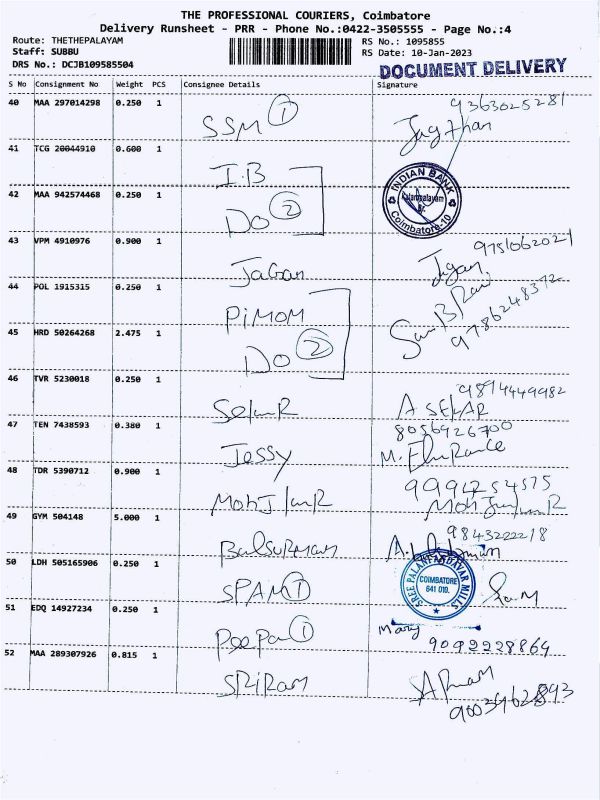 THE PROFESSIONAL COURIERS, Coimbatore
Delivery Runsheet - PRR - Phone No.:0422-3505555 - Page No.:4
Route: THETHEPALAYAM RS No.: 1095855
Staff: SUBBU RS Date: 10-Jan-2023
DRS No.: DCJB109585504 DOCUMENT DELIVERY
S No Consignment No Weight PCS Consignee Details Signature
40 MAA 297014298 0.250 1 SSM 1 9363025281
41 TCG 20044910 0.600 1 I.B INDIAN BANK
42 MAA 942574468 0.250 1 Do 2 Coimbatore-10
43 VPM 4910976 0.900 1 Jagan 9751062021
44 POL 1915315 0.250 1 PiMOM
45 HRD 50264268 2.475 1 Do 2 9786248372
46 TVR 5230018 0.250 1 SekaR A SEKAR 9814449982
47 TEN 7438593 0.380 1 Jessy 8056926700
48 TDR 5390712 0.900 1
49 GYM 504148 5.000 1 9843222218
50 LDH 505165906 0.250 1 SPAM 1 SREE PALANIANDAVAR MILLS COIMBATORE 641 019. Sam
51 EDQ 14927234 0.250 1 Peepa 1 Mary 9092228869
52 MAA 289307926 0.815 1 SRiRam